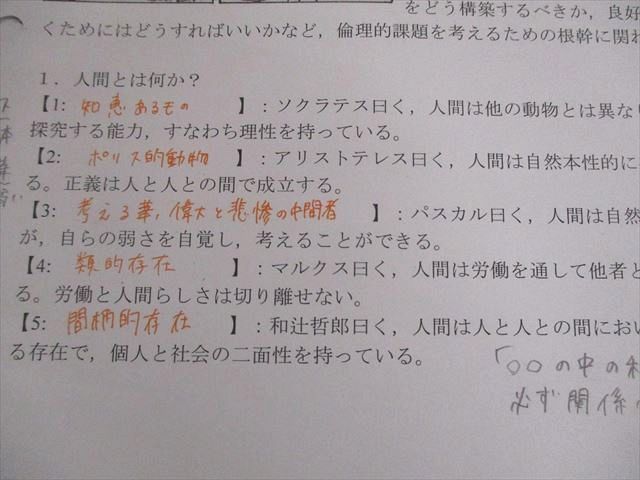 をどう構築するべきか，良好
くためにはどうすればいいかなど，倫理的課題を考えるための根幹に関わ
1．人間とは何か？
【1: 知恵あるもの 】：ソクラテス曰く，人間は他の動物とは異な
探究する能力，すなわち理性を持っている。
【2: ポリス的動物 】：アリストテレス曰く，人間は自然本性的に
る。正義は人と人との間で成立する。
【3: 考える葦，偉大と悲惨の中間者 】：パスカル曰く，人間は自然
が，自らの弱さを自覚し，考えることができる。
【4: 類的存在 】：マルクス曰く，人間は労働を通して他者と
る。労働と人間らしさは切り離せない。
【5: 間柄的存在 】：和辻哲郎曰く，人間は人と人との間におい
る存在で，個人と社会の二面性を持っている。
「○○の中の私
必ず関係